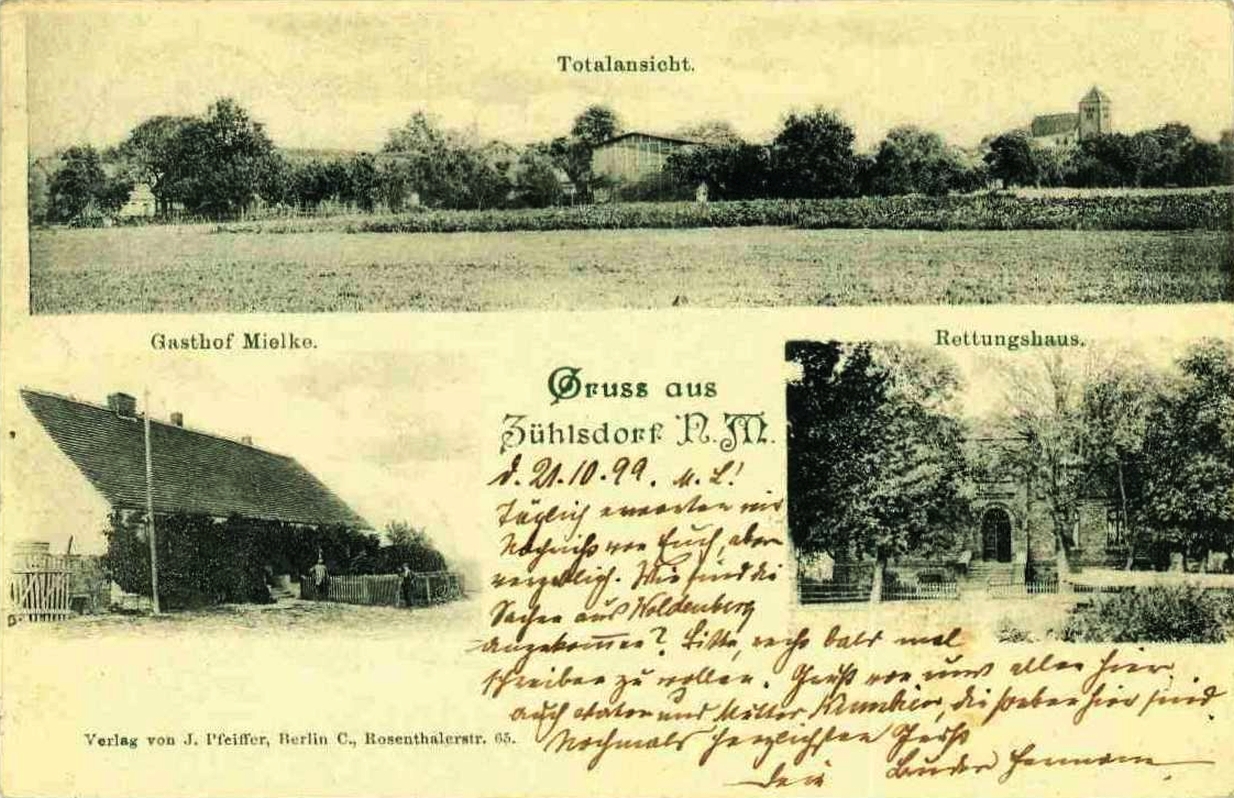 Totalansicht.
Gasthof Mielke.
Rettungshaus.
Gruss aus
Zühlsdorf N. M.
d. 21.10.99. M. L!
Täglich erwarten wir
Nachricht von Euch, aber
vergeblich. Wie sind die
Sachen aus Woldenberg
angekommen? Bitte, recht bald mal
schreiben zu wollen. Gruß von uns allen hier,
auch Vater und Mutter, die soeben hier sind.
Nochmals herzlichsten Gruß
Dein Bruder Hermann.
Verlag von J. Pfeiffer, Berlin C., Rosenthalerstr. 65.